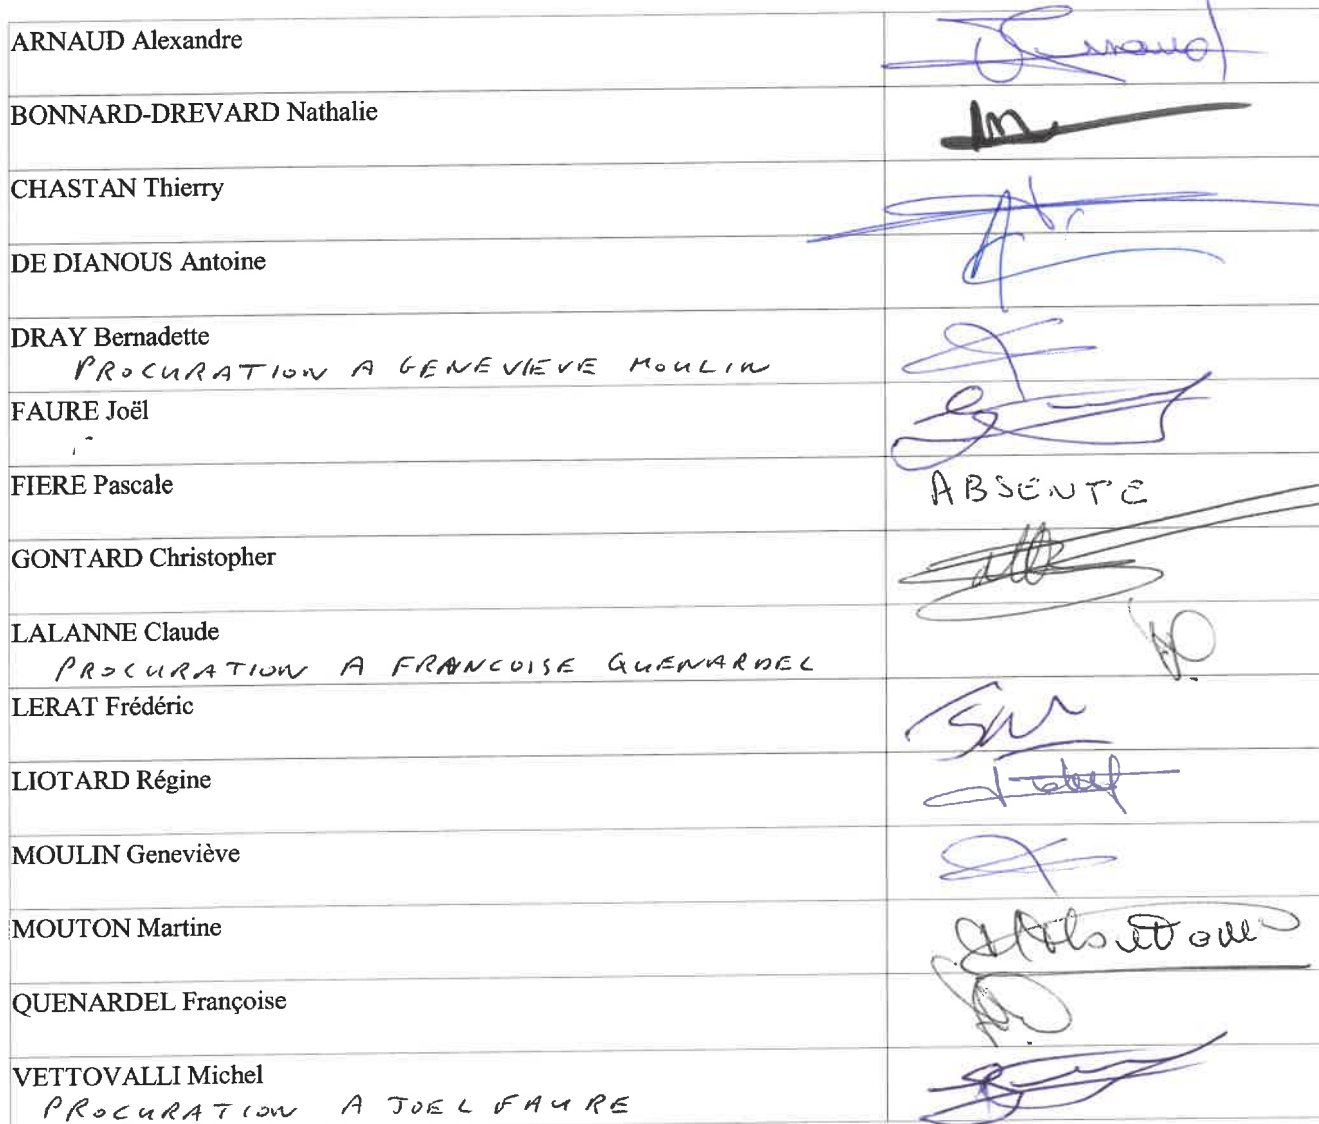 ARNAUD Alexandre
BONNARD-DREVARD Nathalie
CHASTAN Thierry
DE DIANOUS Antoine
DRAY Bernadette
PROCURATION A GENEVIEVE MOULIN
FAURE Joël
FIERE Pascale
ABSENTE
GONTARD Christopher
LALANNE Claude
PROCURATION A FRANCOISE QUENARDEL
LERAT Frédéric
LIOTARD Régine
MOULIN Geneviève
MOUTON Martine
QUENARDEL Françoise
VETTOVALLI Michel
PROCURATION A JOEL FAURE